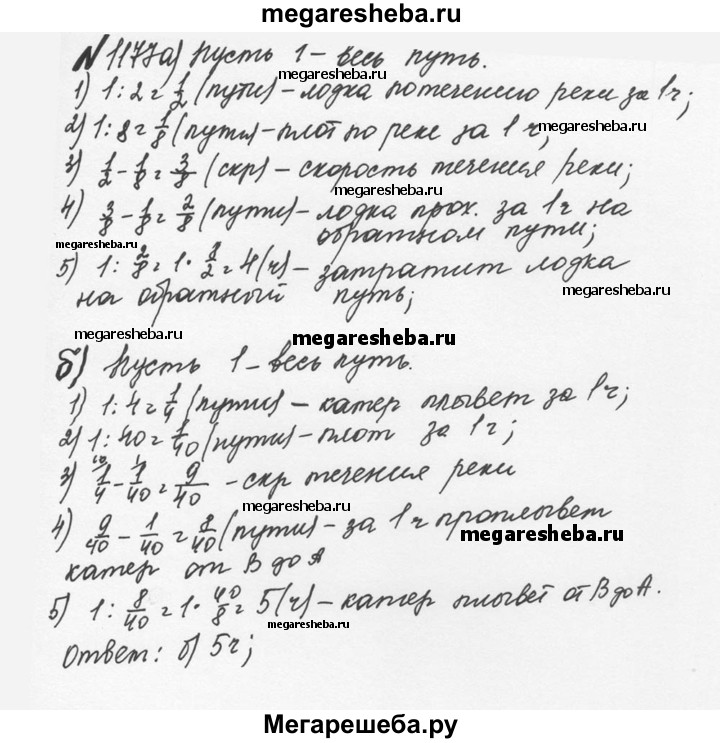 megaresheba.ru
N 1177 а) Пусть 1 - весь путь.
megaresheba.ru
1) 1 : 2 = 1/2 (пути) - лодка по течению реки за 1ч;
2) 1 : 8 = 1/8 (пути) - плот по реке за 1ч;
megaresheba.ru
3) 1/2 - 1/8 = 3/8 (скр) - скорость течения реки;
megaresheba.ru
4) 3/8 - 1/8 = 2/8 (пути) - лодка прох. за 1ч на
обратном пути;
megaresheba.ru
5) 1 : 2/8 = 1 · 8/2 = 4 (ч) - затратит лодка
на обратный путь;
megaresheba.ru
megaresheba.ru
megaresheba.ru
б) Пусть 1 - весь путь.
megaresheba.ru
1) 1 : 4 = 1/4 (пути) - катер плывет за 1ч;
2) 1 : 40 = 1/40 (пути) - плот за 1ч;
3) 1/4 - 1/40 = 9/40 - скр течения реки
megaresheba.ru
4) 9/40 - 1/40 = 8/40 (пути) - за 1ч проплывет
megaresheba.ru
катер от В до А
5) 1 : 8/40 = 1 · 40/8 = 5 (ч) - катер плывет от В до А.
megaresheba.ru
Ответ: б) 5ч;
Мегарешеба.ру